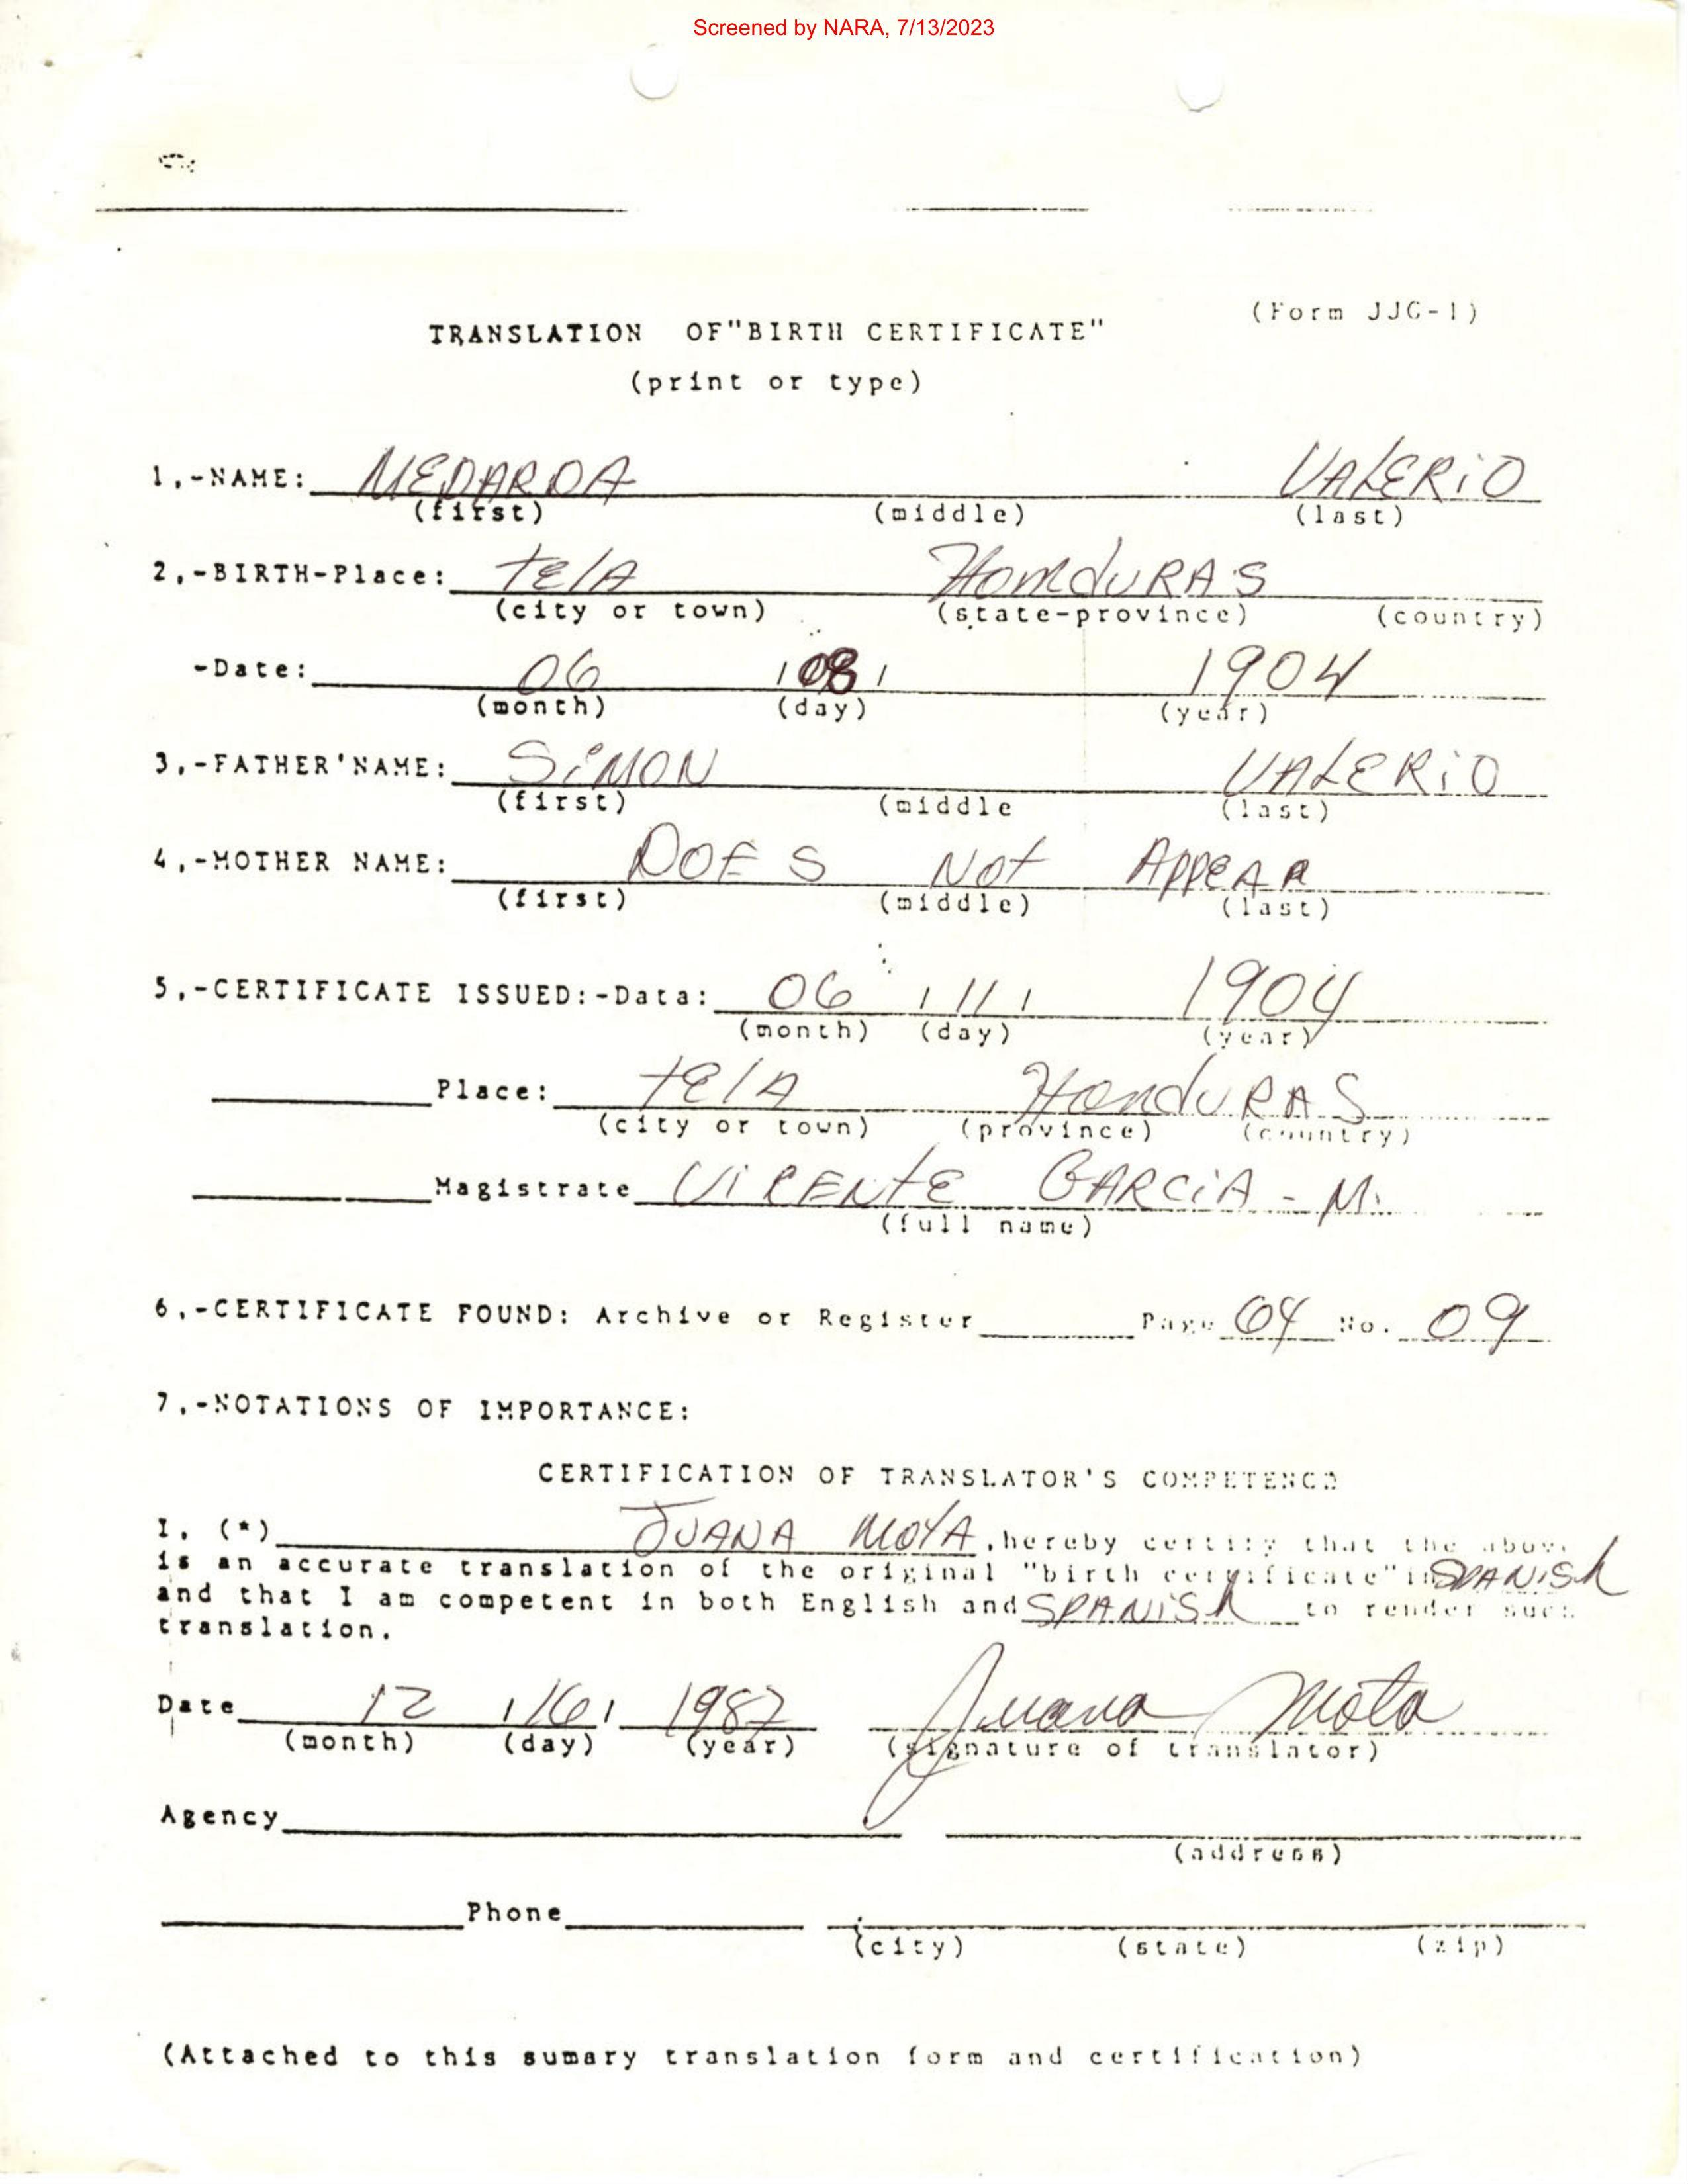 Screened by NARA, 7/13/2023
(Form JJG-1)
TRANSLATION OF "BIRTH CERTIFICATE"
(print or type)
1,-NAME: MEDARDA VALERIO
(first) (middle) (last)
2,-BIRTH-Place: tela HonduRAS
(city or town) (state-province) (country)
-Date: 06 / 08 / 1904
(month) (day) (year)
3,-FATHER'NAME: SiMON VALERiO
(first) (middle (last)
4,-MOTHER NAME: DOES Not AppeAR
(first) (middle) (last)
5,-CERTIFICATE ISSUED:-Data: 06 / 11 / 1904
(month) (day) (year)
Place: telA HonduRAS
(city or town) (province) (country)
Magistrate ViCENtE GARCiA - M.
(full name)
6,-CERTIFICATE FOUND: Archive or Register Page 04 No. 09
7,-NOTATIONS OF IMPORTANCE:
CERTIFICATION OF TRANSLATOR'S COMPETENCE
I, (*) JUANA MOTA, hereby certify that the above
is an accurate translation of the original "birth certificate" in SPANiSh
and that I am competent in both English and SPANiSh to render such
translation.
Date 12 / 16 / 1987 Juana Mota
(month) (day) (year) (signature of translator)
Agency
(address)
Phone
(city) (state) (zip)
(Attached to this sumary translation form and certification)